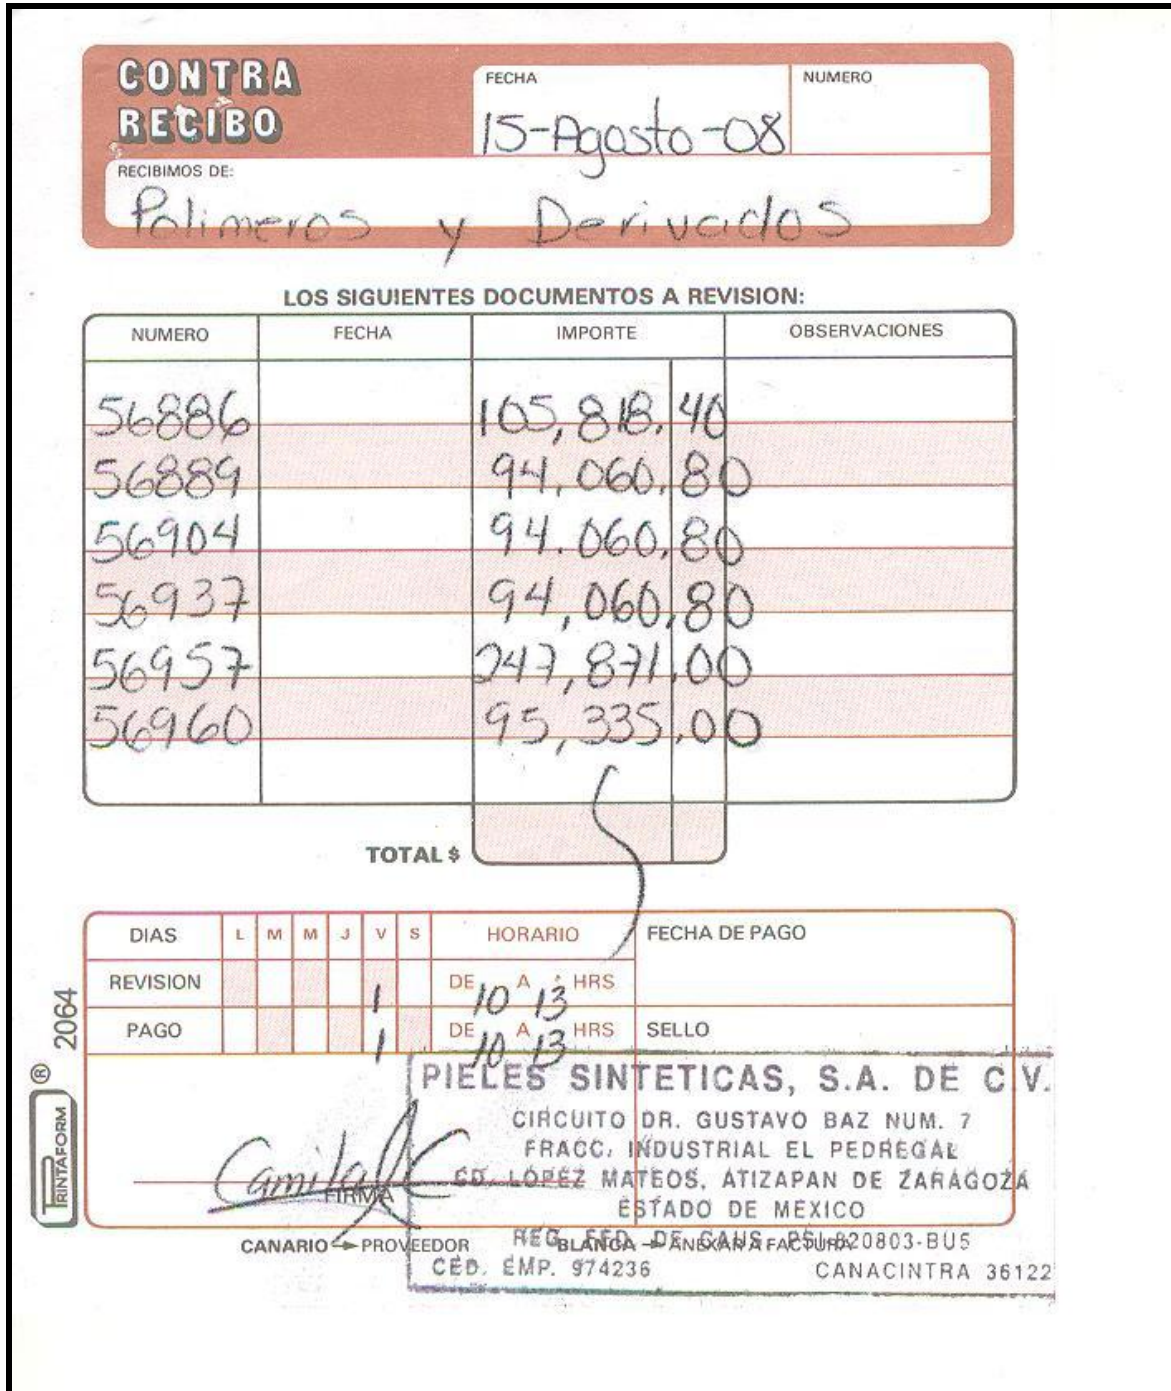 CONTRA
RECIBO
FECHA
NUMERO
15-Agosto-08
RECIBIMOS DE:
Polimeros y Derivados
LOS SIGUIENTES DOCUMENTOS A REVISION:
NUMERO FECHA IMPORTE OBSERVACIONES
56886 105,818.40
56889 94,060.80
56904 94.060.80
56937 94,060.80
56957 247,871.00
56960 95,335.00
TOTAL $
DIAS L M M J V S HORARIO FECHA DE PAGO
REVISION 1 DE 10 A 13 HRS
PAGO 1 DE 10 A 13 HRS SELLO
PIELES SINTETICAS, S.A. DE C.V.
CIRCUITO DR. GUSTAVO BAZ NUM. 7
FRACC. INDUSTRIAL EL PEDREGAL
CD. LOPEZ MATEOS, ATIZAPAN DE ZARAGOZA
ESTADO DE MEXICO
REG. FED. DE CAUS. PSI-820803-BU5
CED. EMP. 974236 CANACINTRA 36122
Camila
FIRMA
CANARIO → PROVEEDOR BLANCA → ANEXAR A FACTURA
PRINTAFORM ® 2064